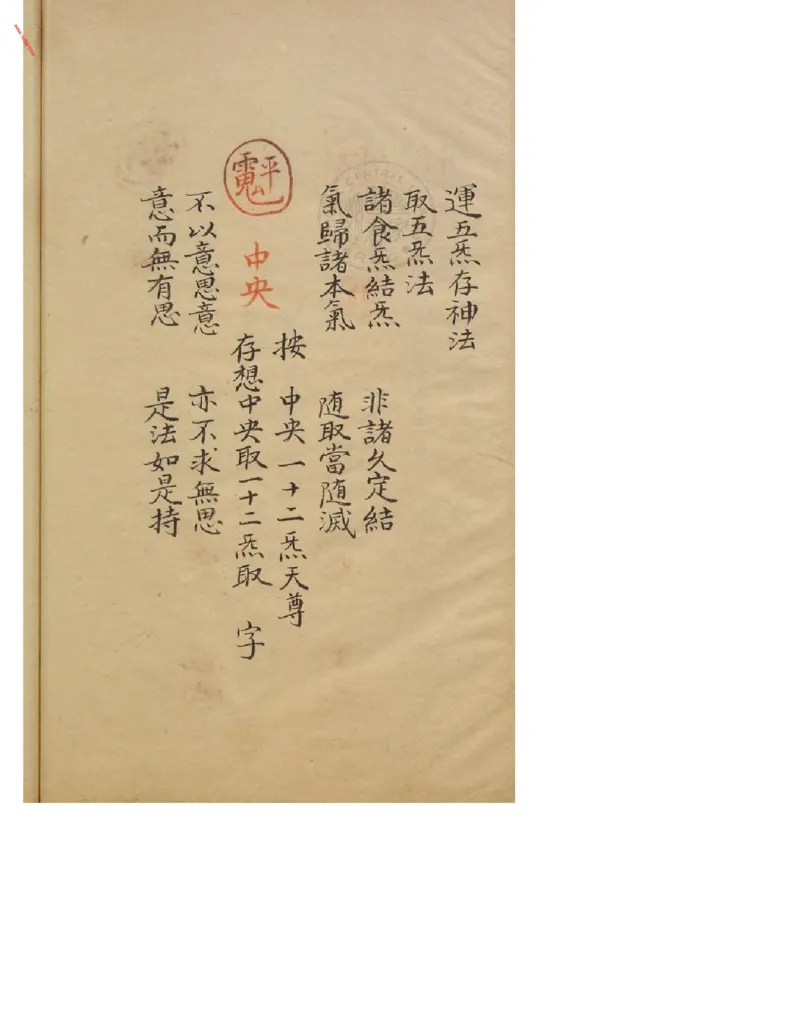 運五炁存神法
取五炁法
諸食炁結炁 非諸久定結
氣歸諸本氣 随取當随滅
按 中央一十二炁天尊
中央
存想中央取一十二炁取 字
不以意思意 亦不求無思
意而無有思 是法如是持